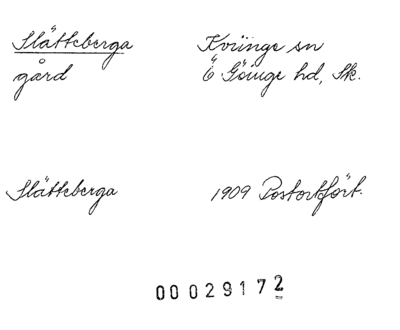 Slätteberga Kviinge sn
gård Ö Göinge hd, Sk.
Slätteberga 1909 Postortsfört.
00029172